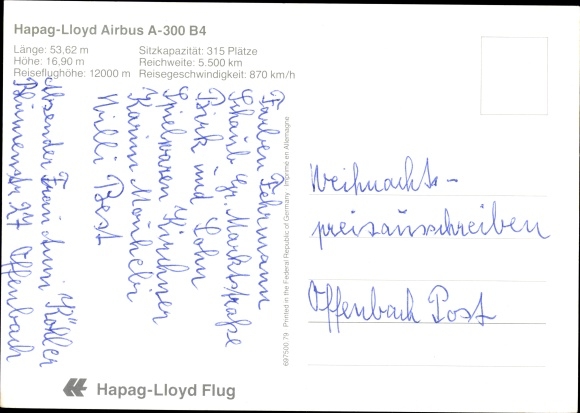 Hapag-Lloyd Airbus A-300 B4
Länge: 53,62 m
Höhe: 16,90 m
Reiseflughöhe: 12000 m
Sitzkapazität: 315 Plätze
Reichweite: 5.500 km
Reisegeschwindigkeit: 870 km/h
Farben Fehrmann
Schaub Gr. Marktstraße
Birk und Sohn
Spielwaren Kirchner
Karin
Willi Best
Absender Frau Anni Kohler
Blumenstr 27 Offenbach
697500.79 · Printed in the Federal Republic of Germany · Imprimé en Allemagne
Weihnachts-
preisausschreiben
Offenbach Post
Hapag-Lloyd Flug